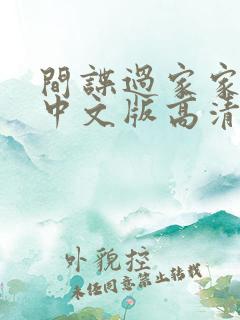 間諜過家家
中文版高清
外貌控
未经同意禁止转载